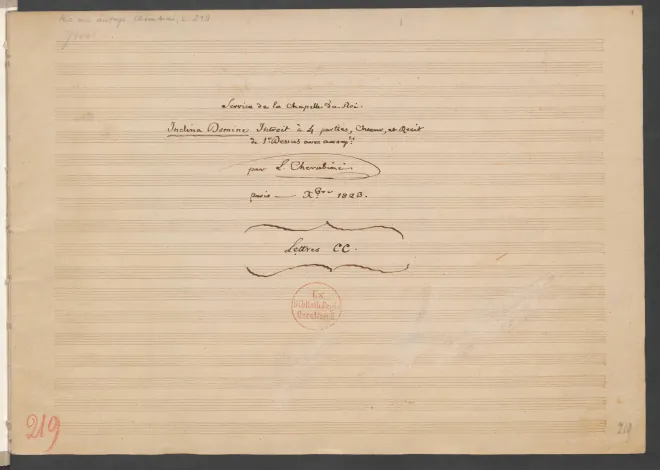 Service de la Chapelle du Roi.
Inclina Domine, Introit à 4 parties, Chœur, et Récit
de 1er Dessus avec accompt
par L. Cherubini
paris — Xbre 1823.
Lettres CC.
Ex
bibliotheca
219
219